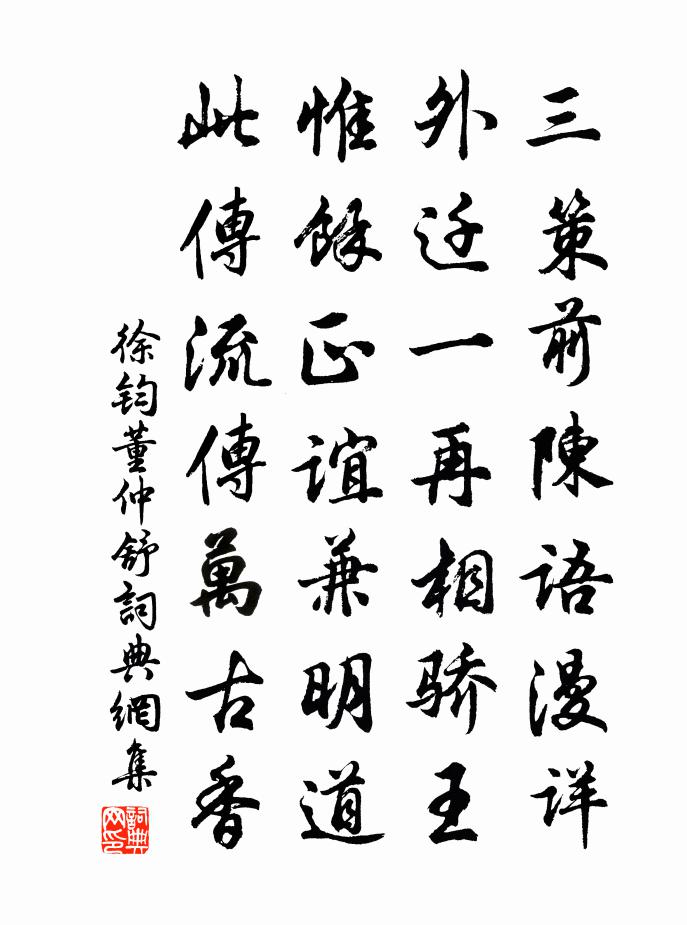 三策前陳語漫詳
外迂一再相骄王
惟餘正誼兼明道
此傳流傳萬古香
徐鈞董仲舒詞典網集
詞典网印